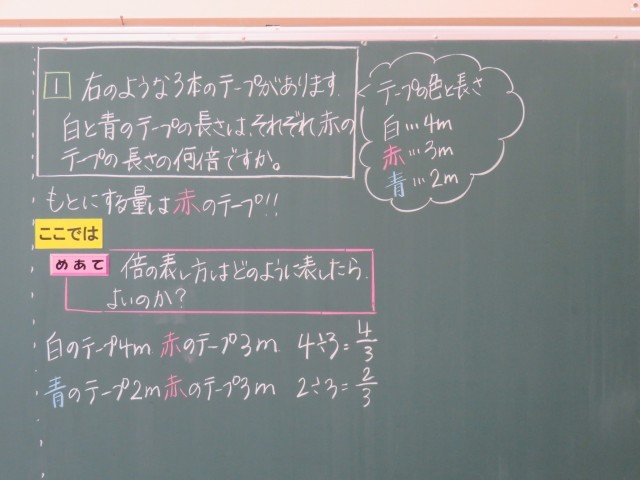 1 右のような3本のテープがあります.
白と青のテープの長さは、それぞれ赤の
テープの長さの何倍ですか。
テープの色と長さ
白…4m
赤…3m
青…2m
もとにする量は赤のテープ!!
ここでは
めあて 倍の表し方はどのように表したら
よいのか?
白のテープ4m 赤のテープ3m 4÷3=4/3
青のテープ2m 赤のテープ3m 2÷3=2/3